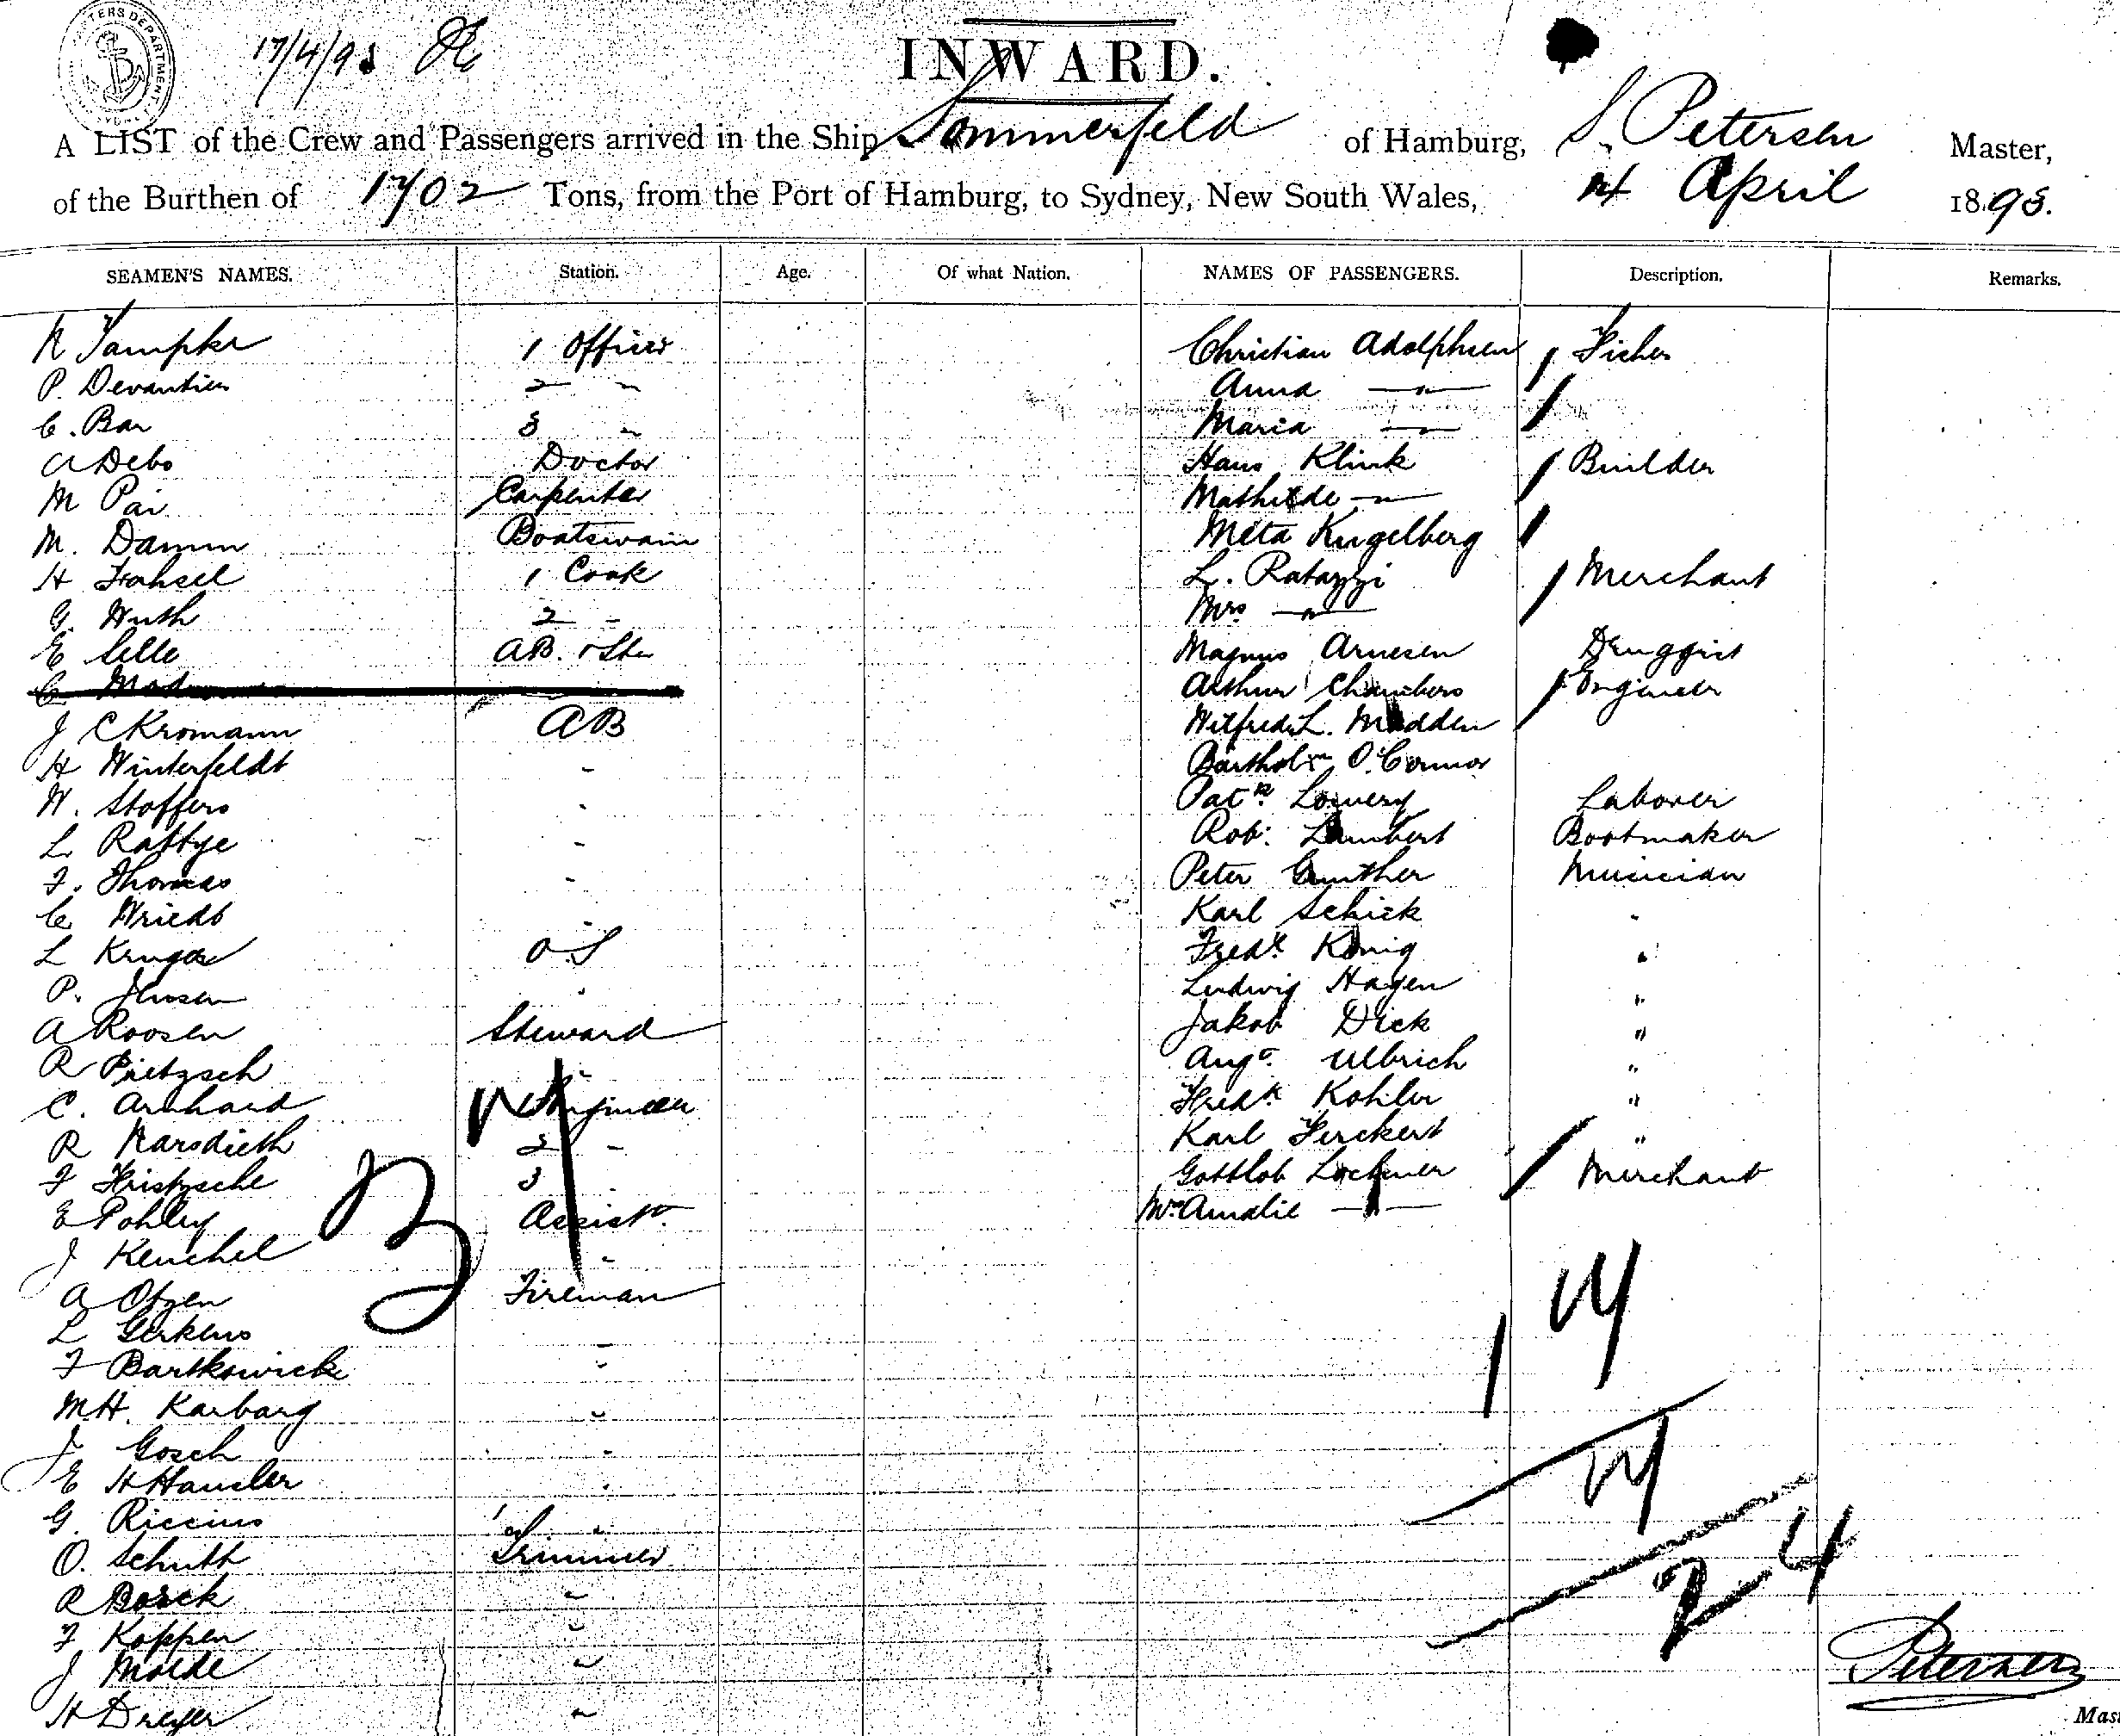 17/4/93
INWARD.
A LIST of the Crew and Passengers arrived in the Ship Sommerfeld of Hamburg, S. Petersen Master,
of the Burthen of 1702 Tons, from the Port of Hamburg, to Sydney, New South Wales, April 1893.
SEAMEN'S NAMES. Station. Age. Of what Nation. NAMES OF PASSENGERS. Description. Remarks.
1 Officer Christian Adolphsen Ficher
P. Devantier 2 " Anna —"—
C. Bar 3 " Maria —"—
A Debo Doctor Hans Klink Builder
M Pai Carpenter Mathilde —"—
M. Damm Boatswain Meta Kugelberg
H Frahsel 1 Cook L. Ratazzi Merchant
G. Huth 2 - Mrs —"—
E Celle AB. Magnus Arnesen Druggist
Arthur Chambers Engineer
J C Kromann AB Wilfred L. Madden
H Winterfeldt - Barthol O'Connor
W. Stoffers - Patk Lowery Laborer
L Rattye - Rob: Lambert Bootmaker
F. Thomas - Peter Gunther Musician
C Wriedt - Karl Schick -
L Kruger O.S Fredk König "
P. Jensen " Ludwig Hagen "
A Roosen Steward Jakob Dick "
R Pietzsch - Augt Ulbrich "
C. Arnhard Engineer Fredk Kohler "
R Karsdieth 2 - Karl Ferckert "
F Fristzsche 3 Gottlob Lochner Merchant
E Pohley Assistt Mrs Amalie —"—
J Kenchel "
A Otzen Fireman
L Gerkens "
F Bartkowick "
M.H. Karbarg "
J Gosch "
E H Hansler "
G. Riccius "
O. Schutt Trimmer
R Borck "
F Koppen "
J Molde "
H Dreyer "
24
Petersen
Mas